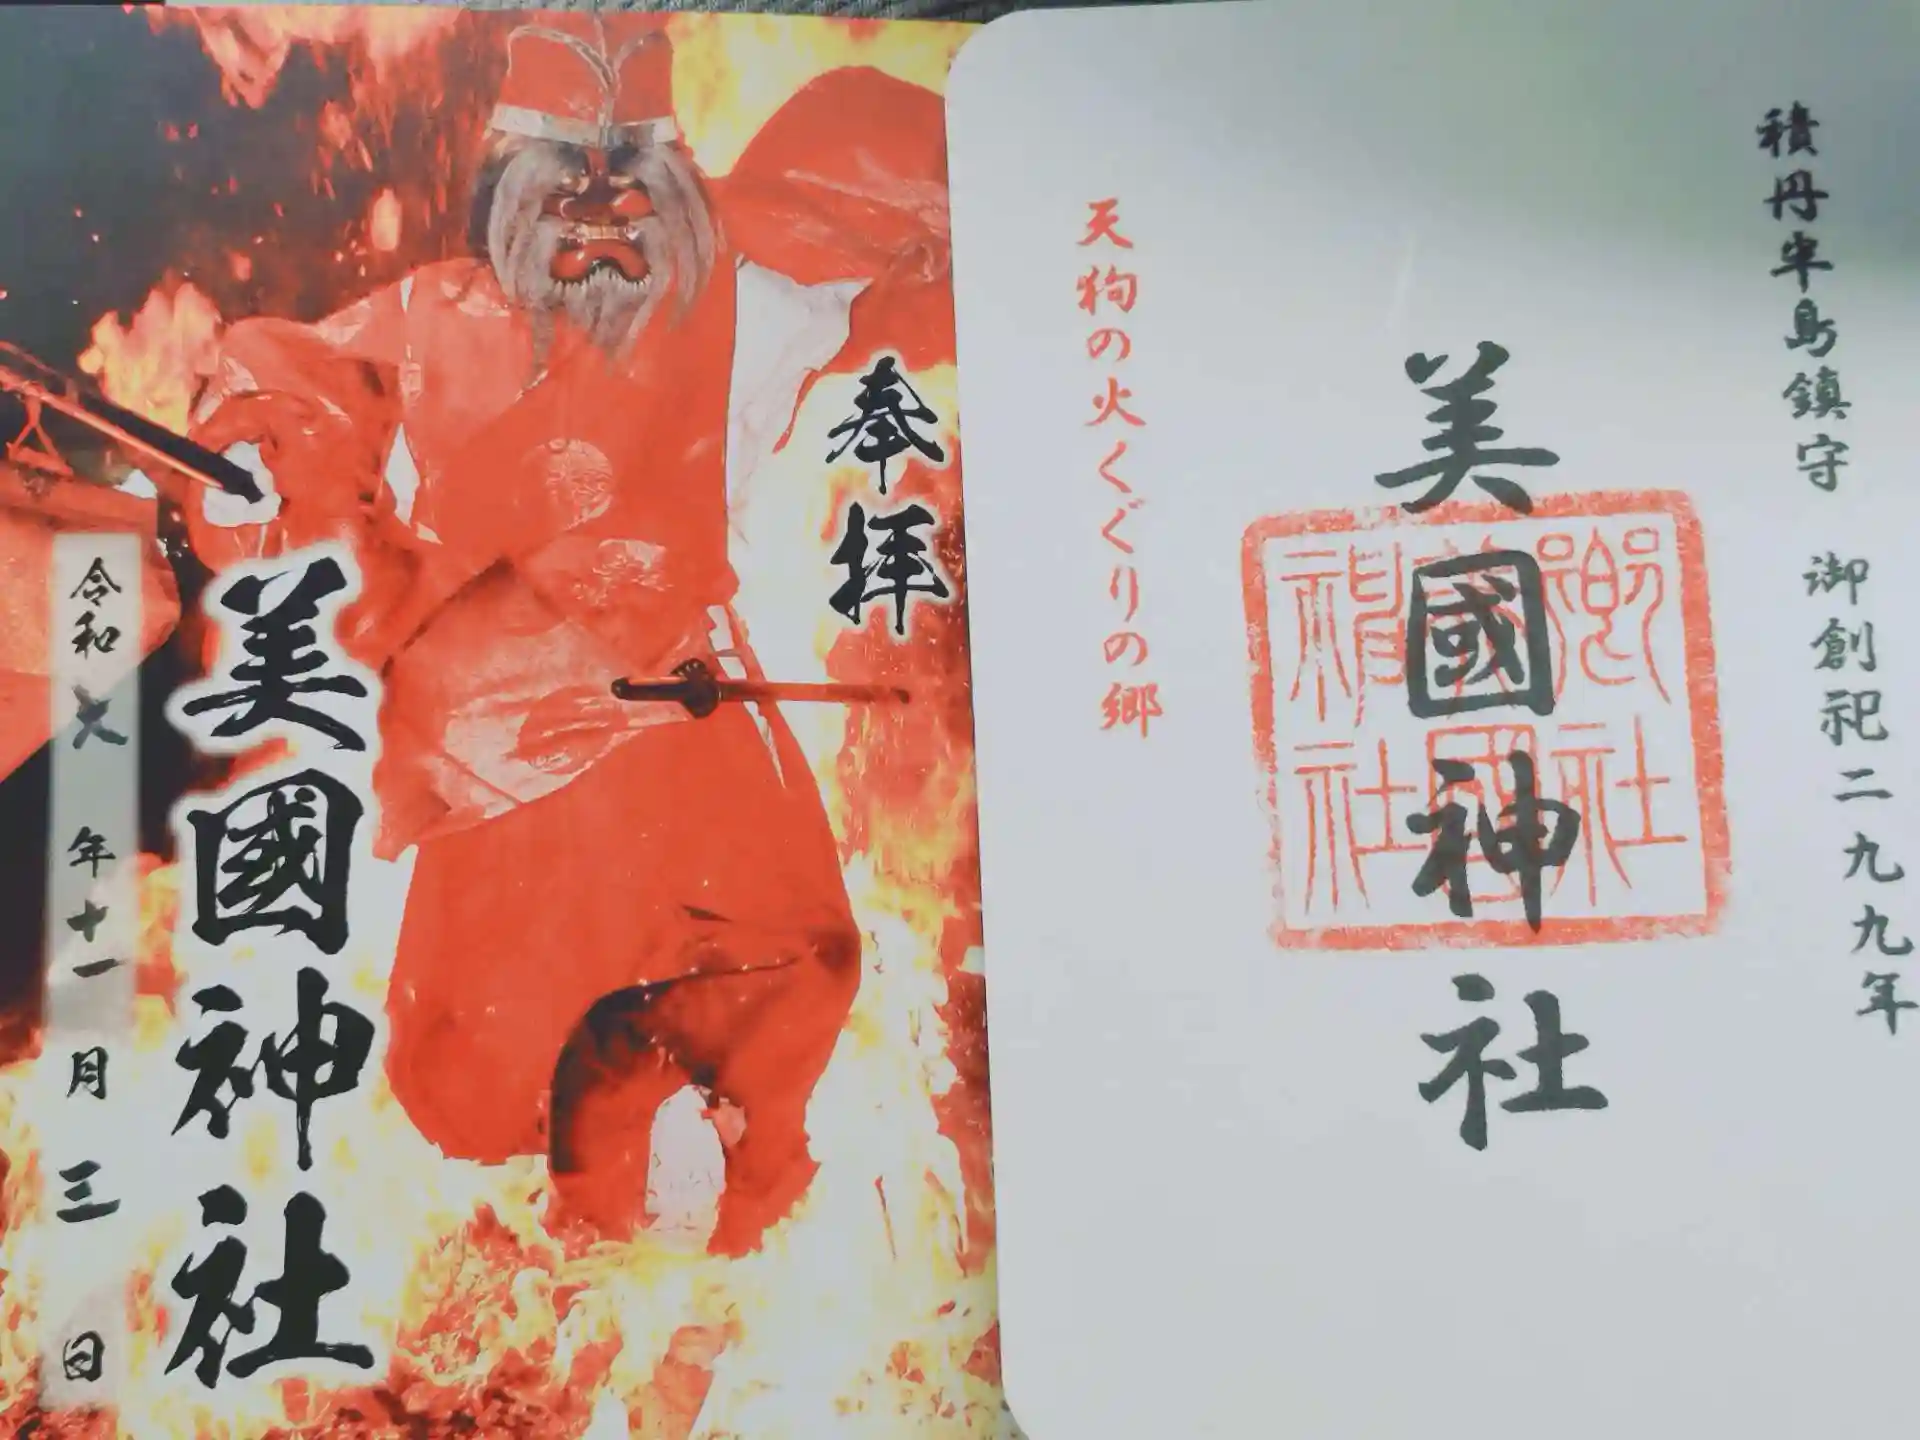 積丹半島鎮守 御創祀二九九年
美國神社
郷社
美國
神社
天狗の火くぐりの郷
奉拝
美國神社
令和六年十一月三日